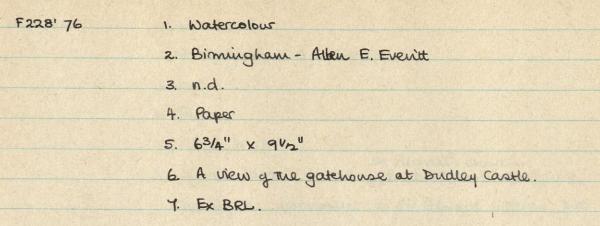 F228' 76 1. Watercolour
2. Birmingham - Allen E. Everitt
3. n.d.
4. Paper
5. 6 3/4" x 9 1/2"
6. A view of the gatehouse at Dudley Castle.
7. Ex BRL.